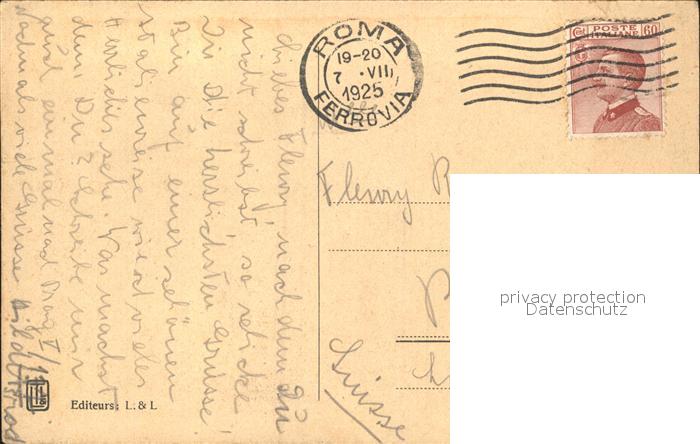 ROMA
19-20
7 . VIII
1925
FERROVIA
POSTE
ITALIANE
60
Liebes Fleury, nach dem Du
nicht schreibst, so schicke
Dir die herzlichsten Grüsse
Bin auf einer schönen
wieder vieles
Herrliches sehe. Was machst
denn Du? schreibe mir
einmal nach Prag
Nochmals viele Grüsse
Fleury
Suisse
privacy protection
Datenschutz
Editeurs: L. & L